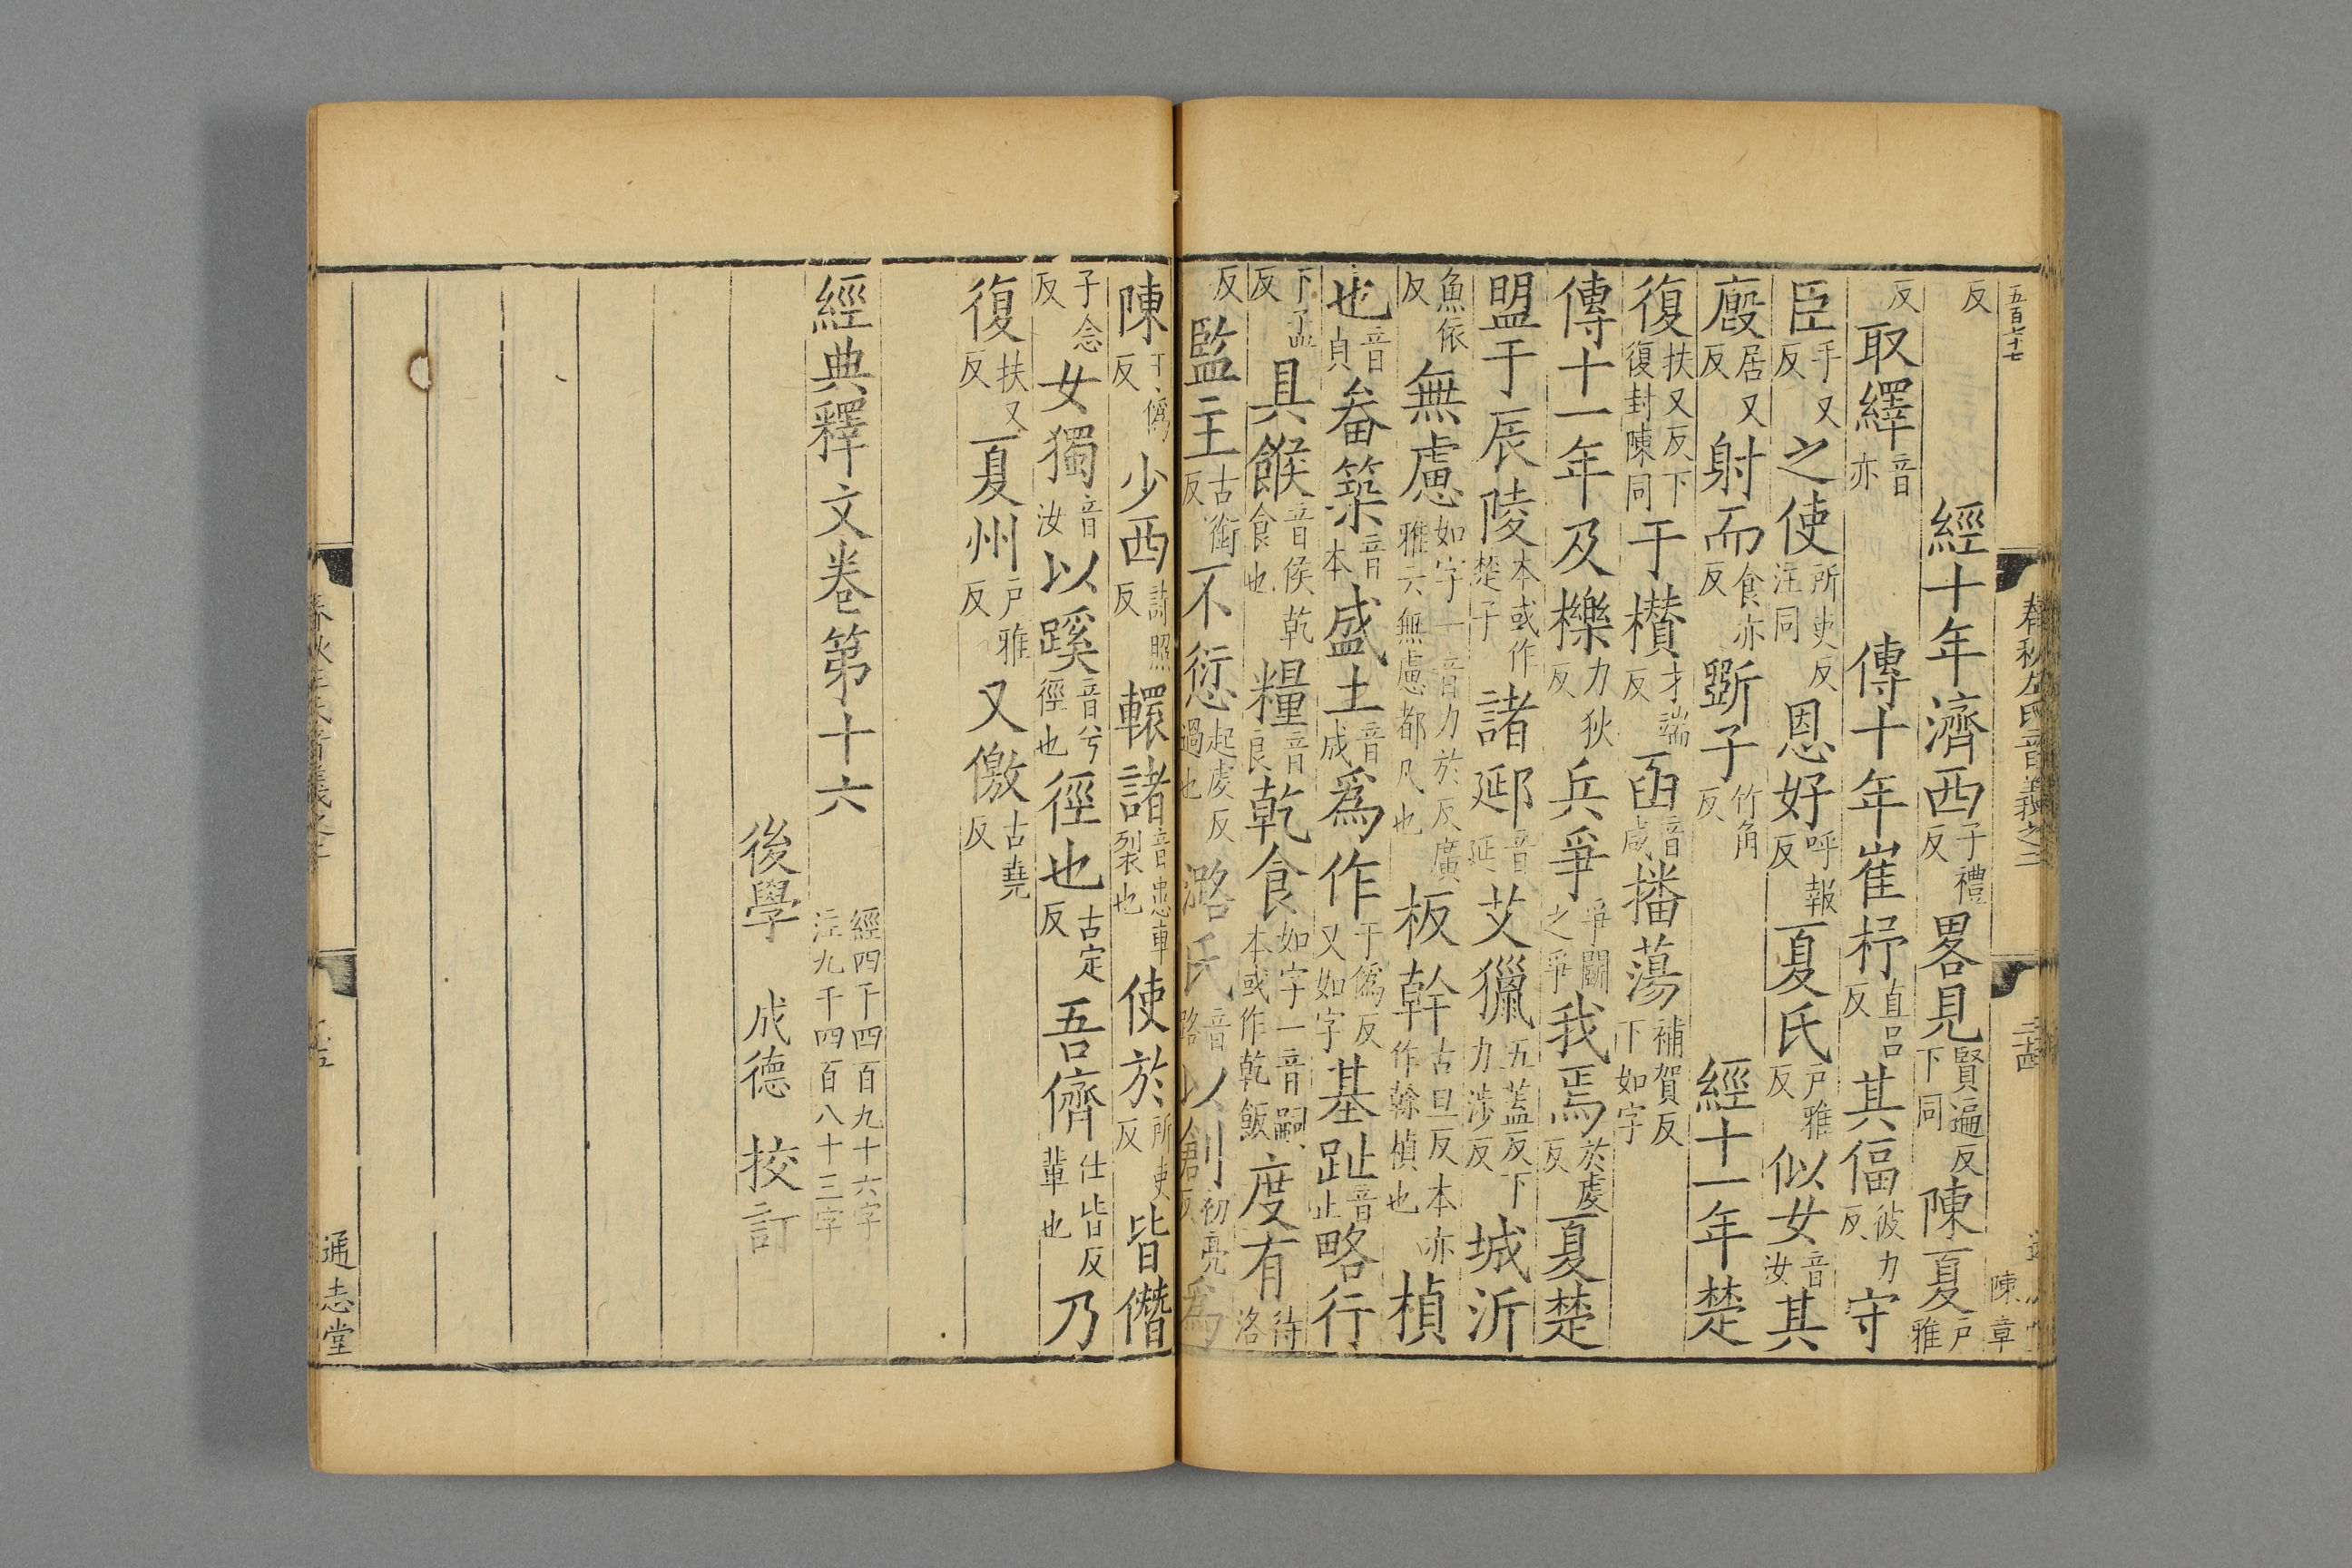 五百十七
春秋左氏音義之二
二十四
陳章
反 經十年濟西子禮反畧見賢遍反下同陳夏戶雅
反取繹音亦 傳十年崔杼直呂反其偪彼力反守
臣手又反之使所吏反注同恩好呼報反夏氏戶雅反似女音汝其
廄居又反射而食亦反斲子竹角反 經十一年楚
復扶又反下復封陳同于欑才端反函音咸播蕩補賀反下如字
傳十一年及櫟力狄反兵爭爭鬬之爭我焉於虔反夏楚
盟于辰陵本或作楚子諸郔音延艾獵五蓋反下力涉反城沂
魚依反無慮如字一音力於反廣雅云無慮都凡也板幹古旦反本亦作榦楨也楨
也音貞畚築音本盛土音成爲作于僞反又如字基趾音止略行
下孟反具餱音侯乾食也糧音良乾食如字一音嗣本或作乾飯度有待洛
反監主古銜反不愆起虔反過也潞氏音路以創初亮反爲
陳于僞反少西詩照反轘諸音患車裂也使於所吏反皆僭
子念反女獨音汝以蹊音兮徑也徑也古定反吾儕仕皆反輩也乃
復扶又反夏州戶雅反又儌古堯反
經典釋文卷第十六 經四千四百九十六字注九千四百八十三字
後學 成德 挍訂
通志堂